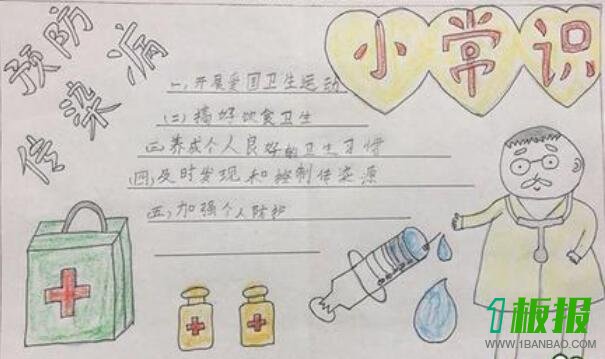 预防
传染病
小常识
一,开展爱国卫生运动
(二)搞好饮食卫生
三养成个人良好的卫生习惯
四,及时发现和控制传染源
五,加强个人防护
1板报
WWW.1BANBAO.COM